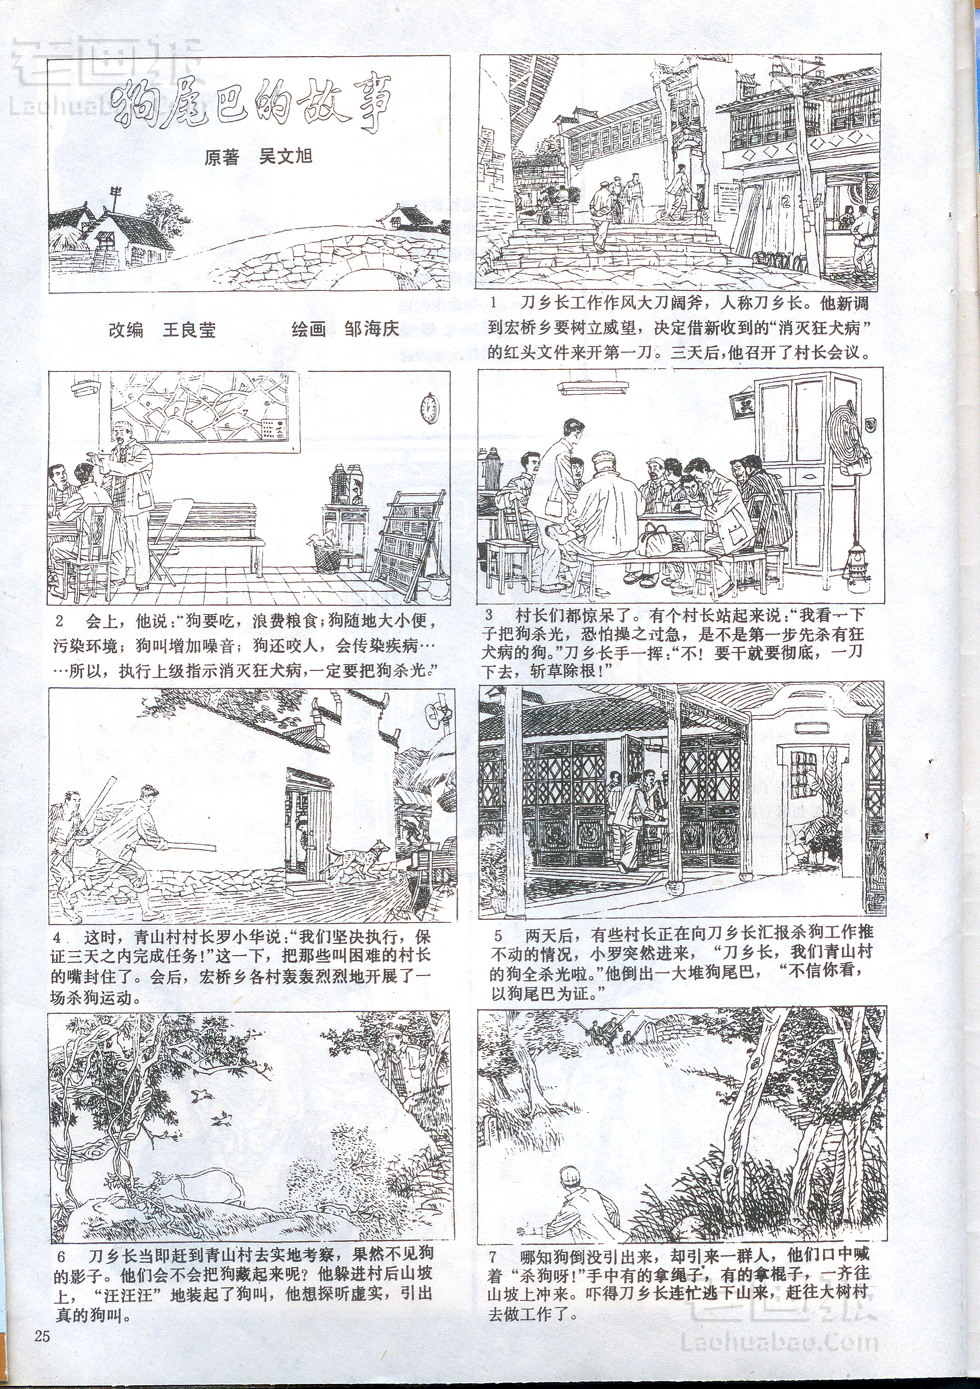 老画报
Laohuabao.Com
狗尾巴的故事
原著 吴文旭
改编 王良莹 绘画 邹海庆
1 刀乡长工作作风大刀阔斧，人称刀乡长。他新调
到宏桥乡要树立威望，决定借新收到的“消灭狂犬病”
的红头文件来开第一刀。三天后，他召开了村长会议。
2 会上，他说：“狗要吃，浪费粮食；狗随地大小便，
污染环境；狗叫增加噪音；狗还咬人，会传染疾病…
…所以，执行上级指示消灭狂犬病，一定要把狗杀光。”
3 村长们都惊呆了。有个村长站起来说：“我看一下
子把狗杀光，恐怕操之过急，是不是第一步先杀有狂
犬病的狗。”刀乡长手一挥：“不！要干就要彻底，一刀
下去，斩草除根！”
4 这时，青山村村长罗小华说：“我们坚决执行，保
证三天之内完成任务！”这一下，把那些叫困难的村长
的嘴封住了。会后，宏桥乡各村轰轰烈烈地开展了一
场杀狗运动。
5 两天后，有些村长正在向刀乡长汇报杀狗工作推
不动的情况，小罗突然进来，“刀乡长，我们青山村
的狗全杀光啦。”他倒出一大堆狗尾巴，“不信你看，
以狗尾巴为证。”
6 刀乡长当即赶到青山村去实地考察，果然不见狗
的影子。他们会不会把狗藏起来呢？他躲进村后山坡
上，“汪汪汪”地装起了狗叫，他想探听虚实，引出
真的狗叫。
7 哪知狗倒没引出来，却引来一群人，他们口中喊
着“杀狗呀！”手中有的拿绳子，有的拿棍子，一齐往
山坡上冲来。吓得刀乡长连忙逃下山来，赶往大树村
去做工作了。
25
老画报
Laohuabao.Com